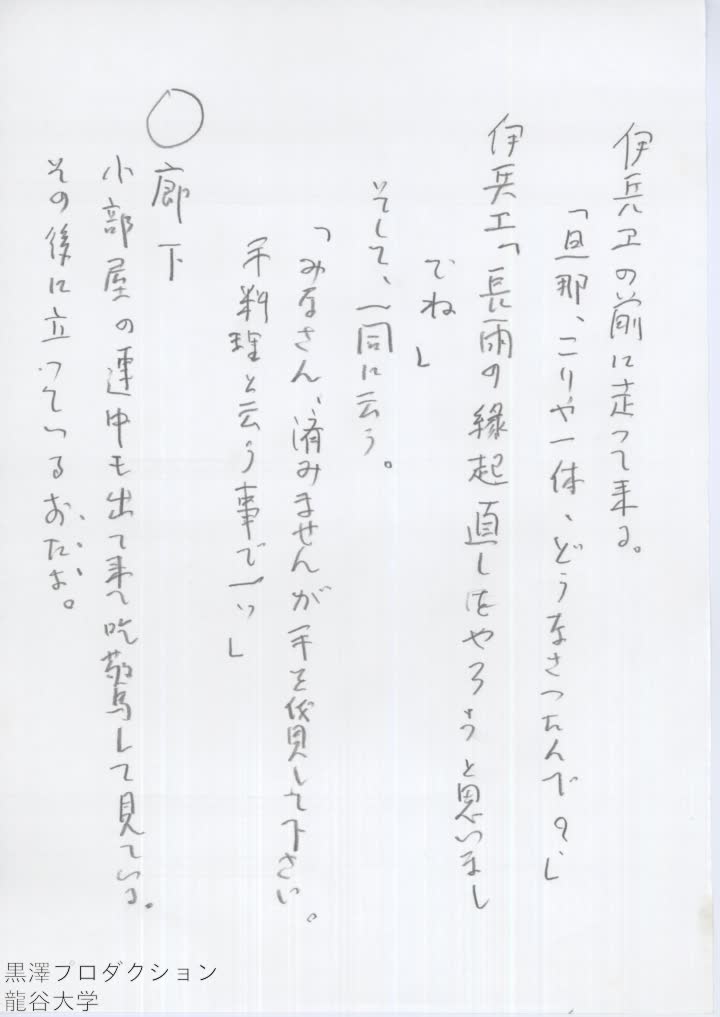 伊兵ヱの前に走って来る。
「旦那、こりや一体、どうなさったんで？」
伊兵ヱ「長雨の縁起直しをやろうと思いまし
でね」
そして、一同に云う。
「みなさん、済みませんが手を貸して下さい。
手料理と云う事で一つ」
○廊下
小部屋の連中も出て来て吃驚して見ている。
その後に立っているおたよ。
黒澤プロダクション
龍谷大学